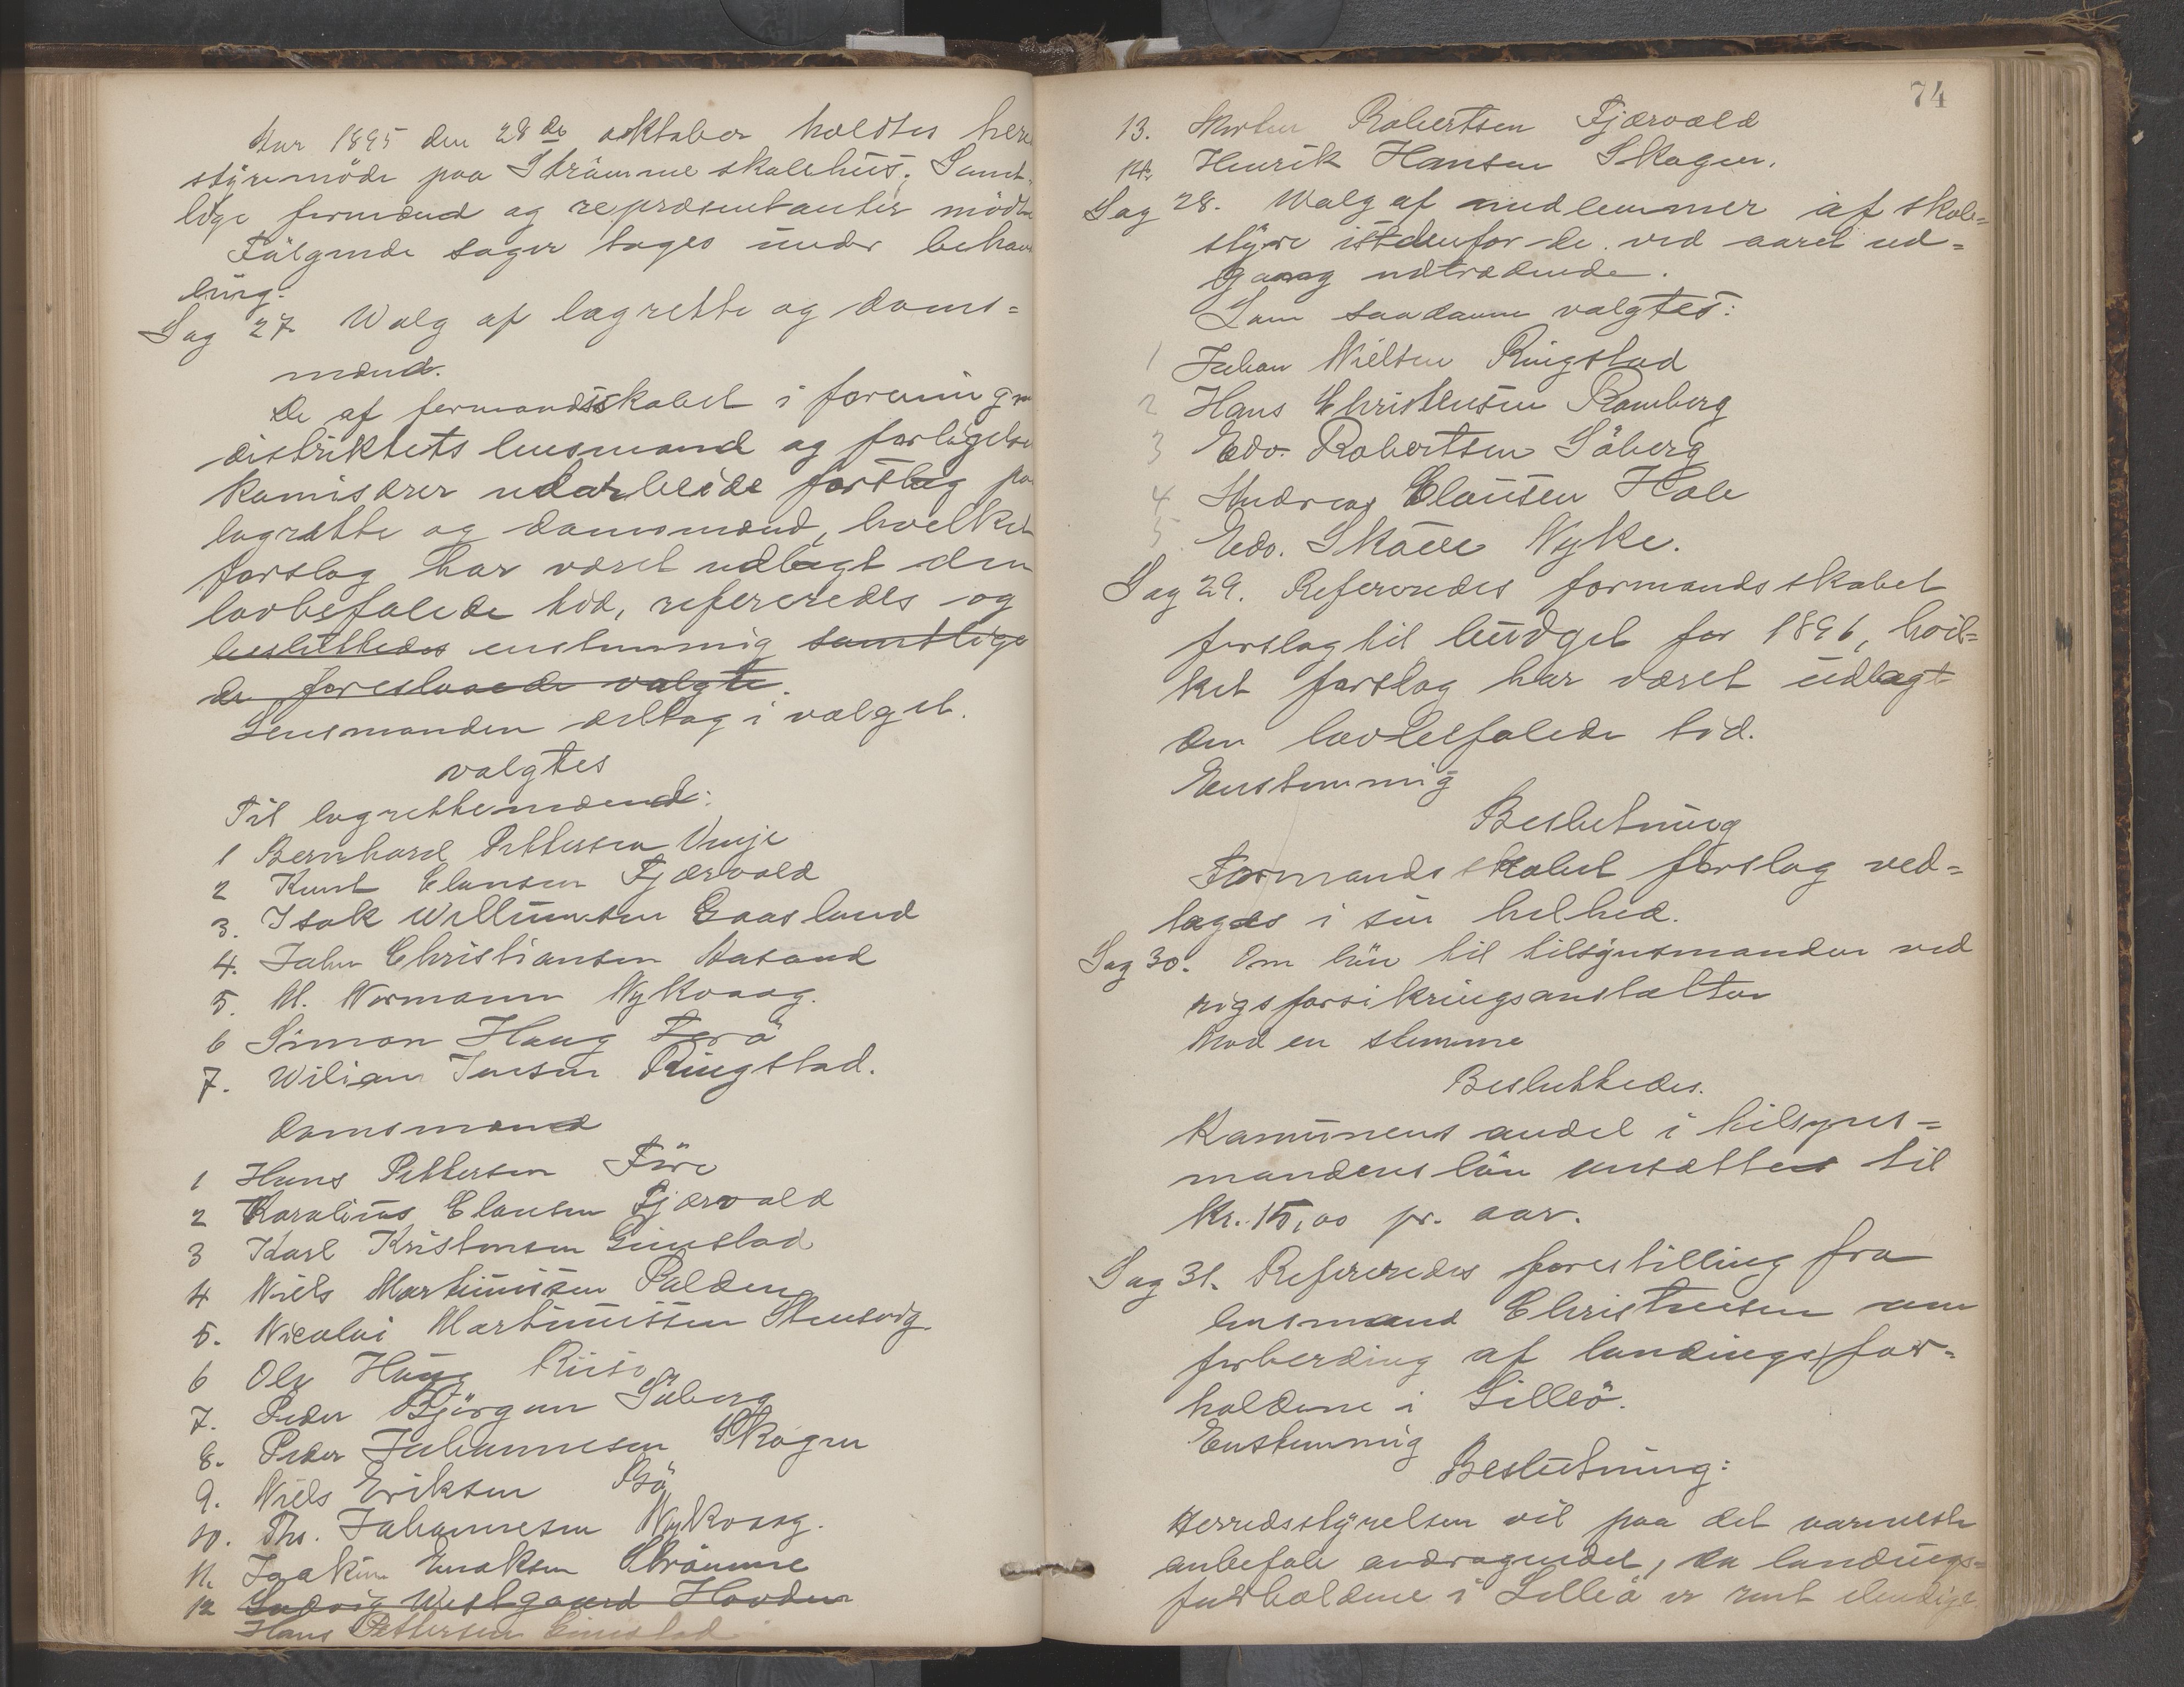 Aar 1895 den 28de oktober holdtes here
styremöde paa Strömme skolehus. Samt-
lige formænd og repræsentanter mödte
Fölgende sager toges under behand
ling:
Sag 27. Walg af lagrette og doms=
mænd.
De af formandsskabet i forening m
distriktets lensmand og forligelse
komisærer udarbeide forslag paa
lagrætte og domsmænd, hvelket
forslag har været udlagt den
lovbefalede tid, refereredes og
besluttedes enstemmig samtlige
de foreslaaede valgte.
Lensmanden deltog i valget.
valgtes
Til lagrettemænd:
1 Bernhard Pettersen Vinje
2 Knut Clausen Fjærvold
3. Isak Willumsen Gaasland
4. John Christiansen Aasand
5. M. Normann Nykvaag.
6 Simon Haug Forö
7. Wiliam Jensen Ringstad.
domsmænd
1 Hans Pettersen Före
2 Karolius Clausen Fjærvold
3 Karl Kristensen Guustad
4 Niels Martinussen Valden
5. Nicolai Martinussen Stensvig
6 Ole Haug Riise
7. Peder Björgan Söberg
8. Peder Johannesen Skogen
9. Niels Eriksen Bö
10. Ths. Johannesen Nykvaag.
11. Joakim Enoksen Strömme
12 Ludvig Westgaard Hovden
Hans Pettersen Guustad
74
13. Morten Robertsen Fjærvold
14. Henrik Hansen Skogen.
Sag 28. Walg af medlemmer af skole=
styre istedenfor de ved aaret ud=
gang udtrædende.
Som saadanne valgtes:
1 Johan Nielsen Ringstad
2 Hans Christensen Ramberg
3 Edv. Robertsen Söberg
4 Andreas Clausen Hole
5. Edv. Skaae Nyke.
Sag 29. Refereredes formandsskabet
forslag til budget for 1896, hvil=
ket forslag har været udlagt
den lovbefalede tid.
Enstemmig
Beslutning
Formandsskabet forslag ved=
toges i sin helhed.
Sag 30. Om lön til tilsynsmanden ved
rigsforsikringsanstalten
Mod en stemme
Besluttedes.
Komunens andel i tilsyns=
mandens lön ansættes til
Kr. 15,00 pr. aar.
Sag 31. Refereredes forestilling fra
lensmand Christensen om
forberding af landings for-
holdene i Lilleö.
Enstemmig
Beslutning:
Herredsstyrelsen vil paa det varmeste
anbefale andragendet, da landings=
forholdene i Lilleö er rent elendige